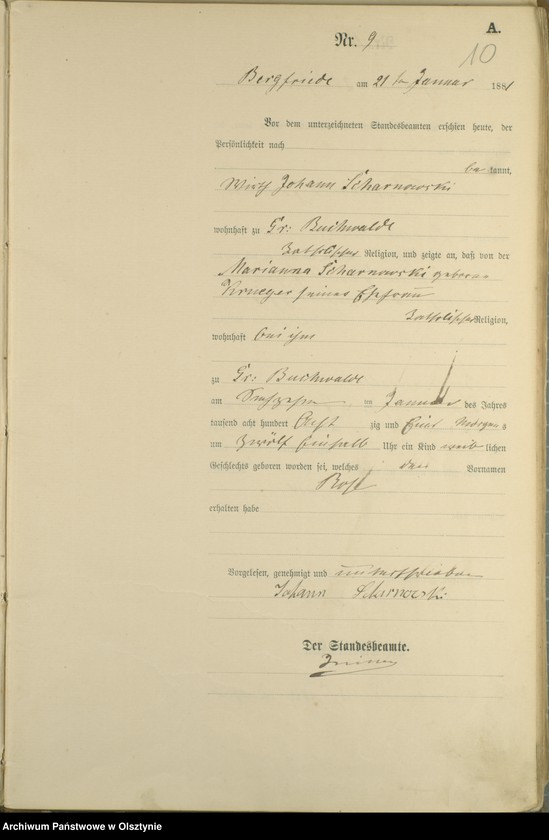 A.
Nr. 9
10
Bergfriede am 21ten Januar 1881
Vor dem unterzeichneten Standesbeamten erschien heute, der
Persönlichkeit nach
bekannt,
Wirth Johann Scharnowski
wohnhaft zu Gr: Buchwalde
katholischer Religion, und zeigte an, daß von der
Marianna Scharnowski geborene
Krueger seiner Ehefrau
katholischer Religion,
wohnhaft bei ihm
zu Gr: Buchwalde
am Sechszehn im Januar des Jahres
tausend acht hundert Acht zig und Eins Morgens
um zwölf einhalb Uhr ein Kind weib lichen
Geschlechts geboren worden sei, welches den Vornamen
Rosa
erhalten habe
Vorgelesen, genehmigt und unterschrieben
Johann Scharnowski
Der Standesbeamte.
Archiwum Państwowe w Olsztynie